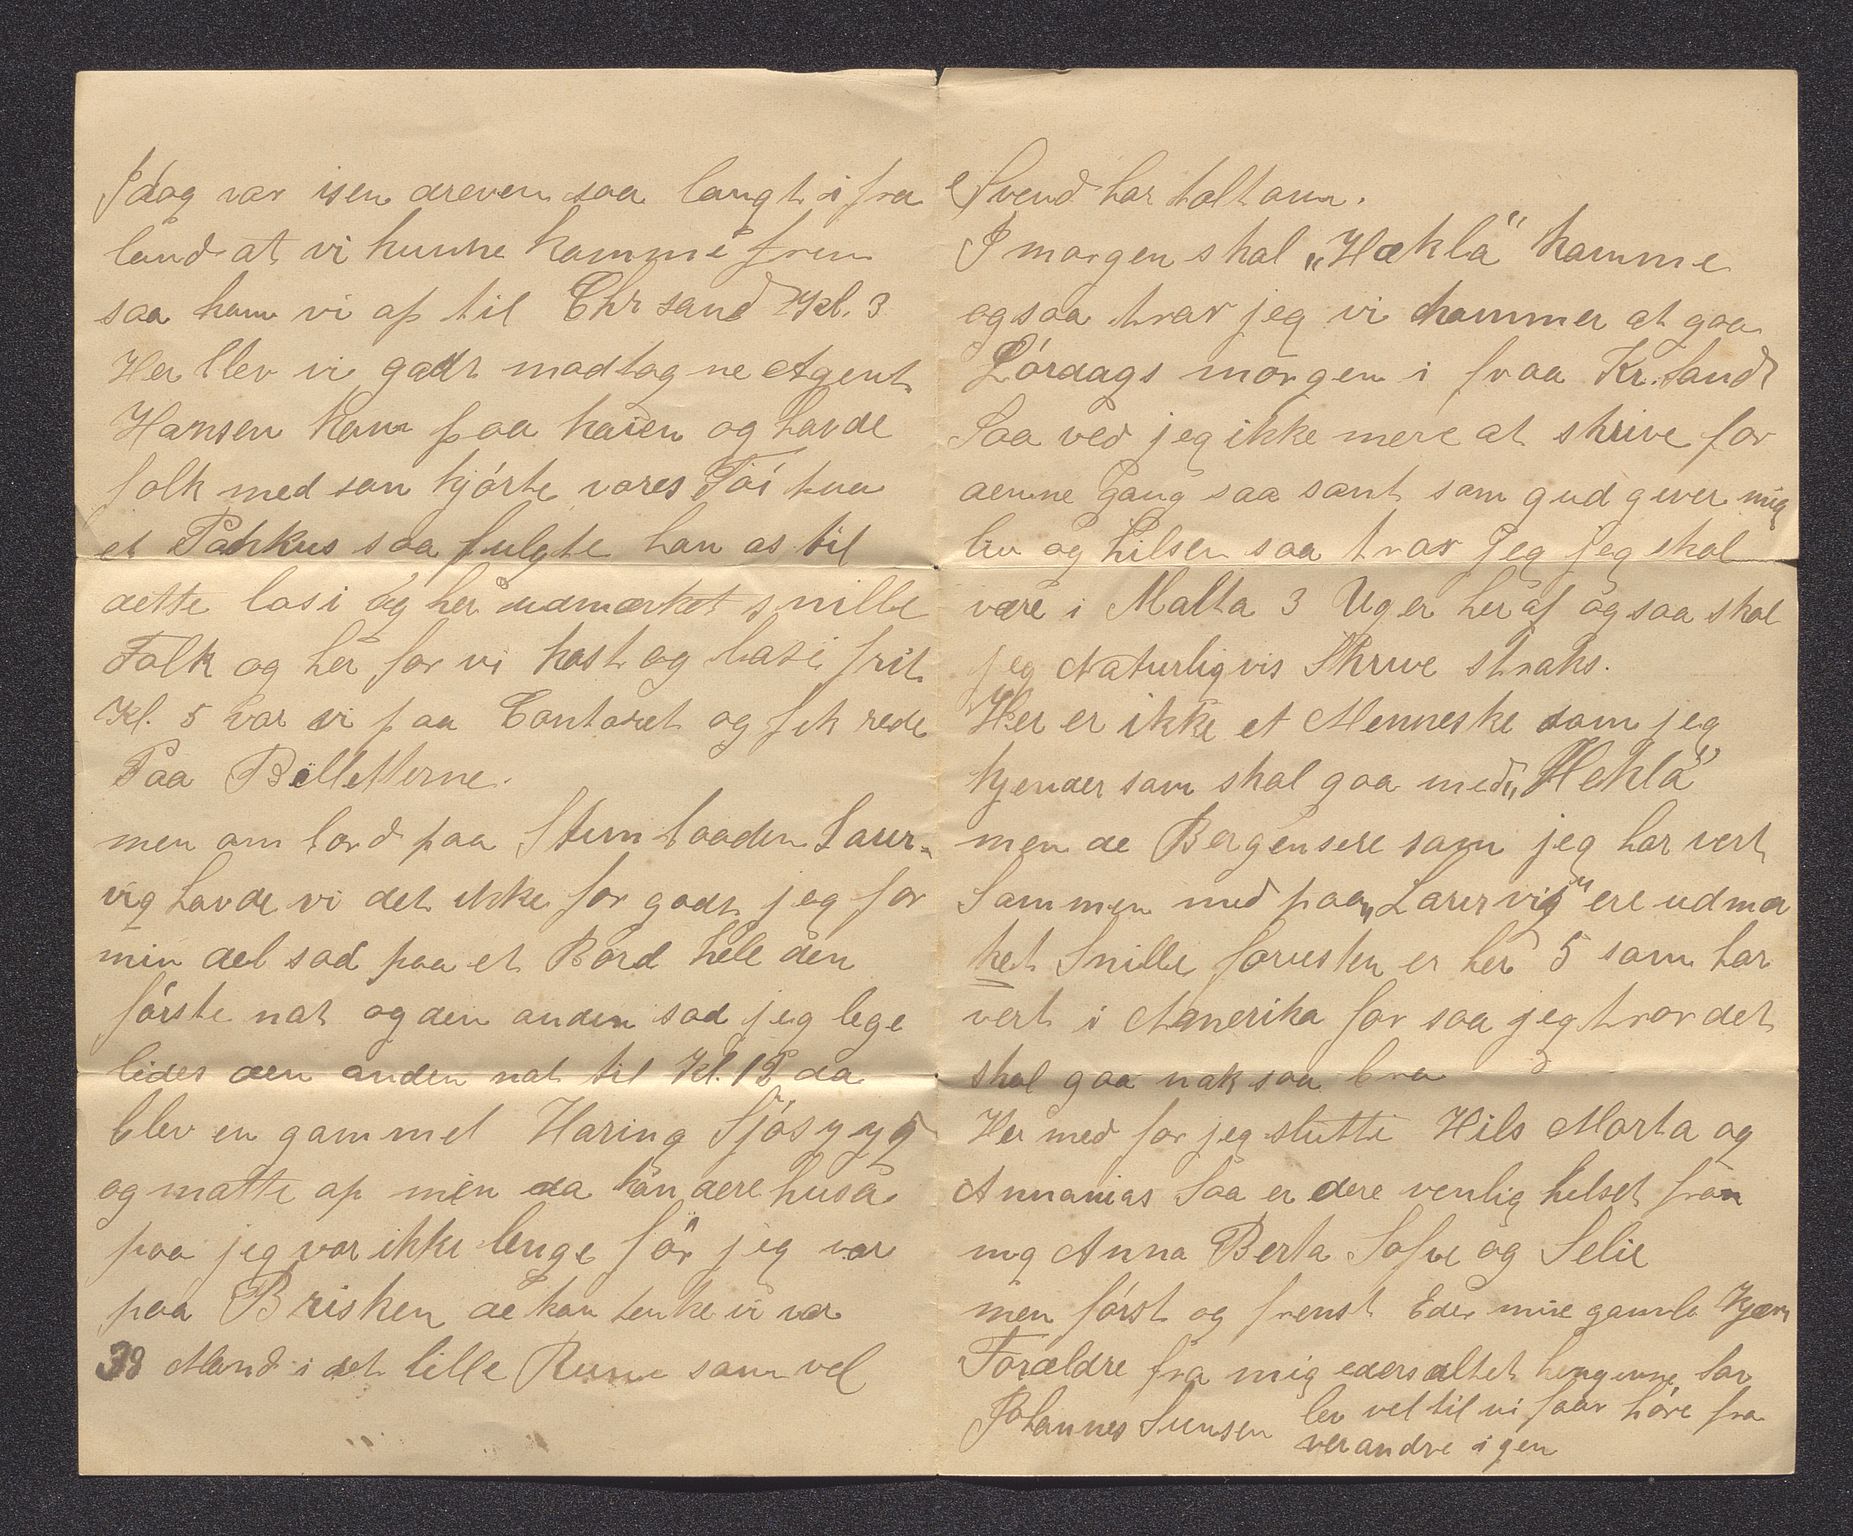 Idag var isen dreven saa langt ifra
land at vi kunne komme frem
saa kom vi af til Chr sand Kl. 3
Her blev vi godt modtagne Agent
Hansen kom paa kaien og havde
folk med som kjörte vores Töi
et Pakhus saa fulgte han os til
dette losi og her udmærket snille
Folk og her for vi kost og losi frit
Kl. 5 var vi paa Contoret og fik rede
Paa Billetterne.
men om bord paa Stimbaaden Laur-
vig havde vi det ikke for godt jeg for
min del sad paa et Bord hele den
förste nat og den anden sad jeg lege
ledes den anden nat til Kl. 12 da
blev en gammel Haring Sjösyyg
og matte op men da kan dere husa
paa jeg var ikke lenge för jeg var
paa Brisken de kan tenke vi var
38 Mand i det lille Rume som vel
Svend har talt om.
I morgen skal „Hækla" komme
og saa tror jeg vi kommer at gaa
Lördags morgen i fraa Kr. sand
Saa ved jeg ikke mere at skrive for
denne Gang saa sant som gud giver mig
liv og hilsen saa tror jeg jeg skal
være i Malta 3 Uger her af og saa skal
jeg Naturligvis Skrive straks.
Her er ikke et Menneske som jeg
kjender som skal gaa med „Hekla"
men de Bergensere som jeg har vert
Sammen med paa „Laurvig" ere udmær
ket Snille foresten er her 5 som har
vert i Amerika for saa jeg tror det
skal gaa nok saa bra
Her med for jeg slutte Hils Marta og
Annanias Saa er dere venlig helset fran
mig Anna Berta Sofie og Selie
men först og fremst Eder mine gamle Kjere
Forældre fra mig eders altet hengivne Son
Johannes Simsen lev vel til vi faar höre fra
verandre igen